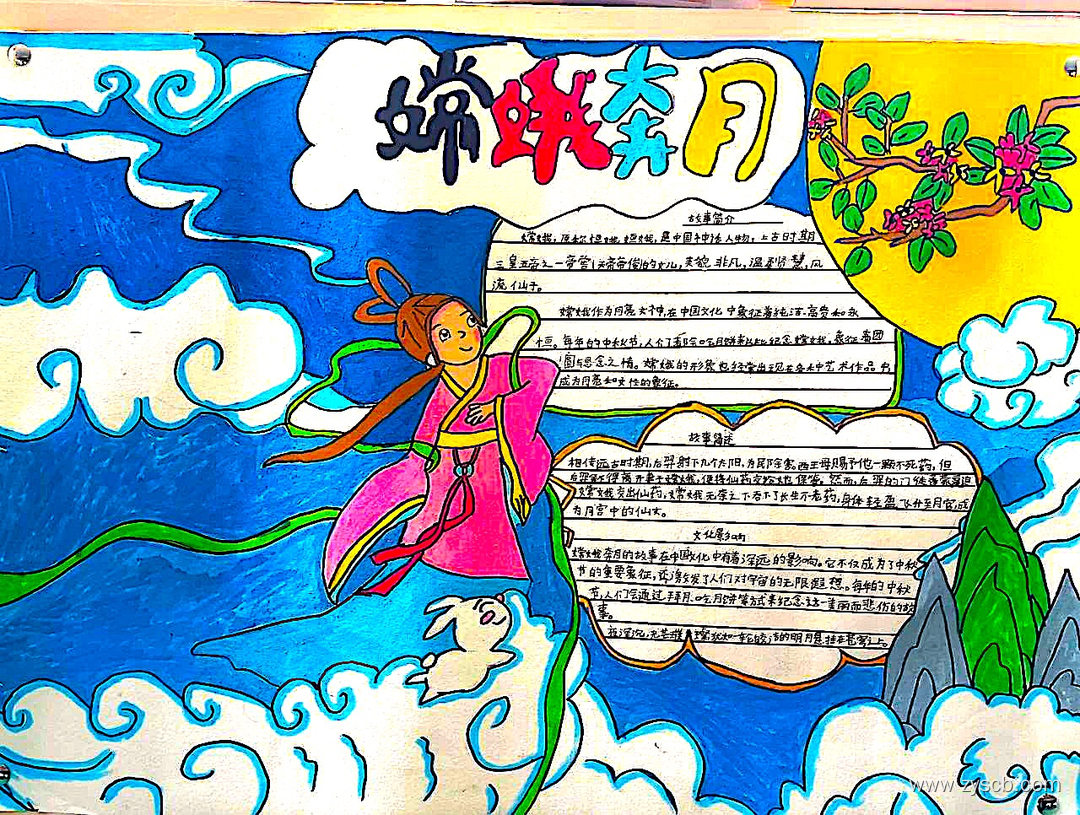 嫦娥奔月
故事简介
嫦娥，原称恒娥、姮娥，是中国神话人物，上古时期
三皇五帝之一帝喾（天帝帝俊）的女儿，美貌非凡，温柔贤慧，风
流仙子。
嫦娥作为月亮女神，在中国文化中象征着纯洁、高贵和永
恒。每年的中秋节，人们了看吃月饼来以此纪念嫦娥，象征着团
圆与思念之情。嫦娥的形象也经常出现在各种艺术作品中
成为月亮和女性的象征。
故事简述
相传远古时期，后羿射下九个太阳，为民除害，西王母赐予他一颗不死药，但
后羿舍不得离开妻子嫦娥，便将仙药交给她保管。然而，后羿的门徒蓬蒙逼迫
嫦娥交出仙药，嫦娥无奈之下吞下了长生不老药，身体轻盈，飞升至月宫，成
为月宫中的仙女。
文化影响
嫦娥奔月的故事在中国文化中有着深远的影响。它不仅成为了中秋
节的重要象征，还激发了人们对宇宙的无限遐想。每年的中秋
节，人们会通过拜月、吃月饼等方式来纪念这一美丽而悲伤的故
事。
夜深沉，嫦娥犹如一轮皎洁的明月悬挂在苍穹上。
www.zyscb.com